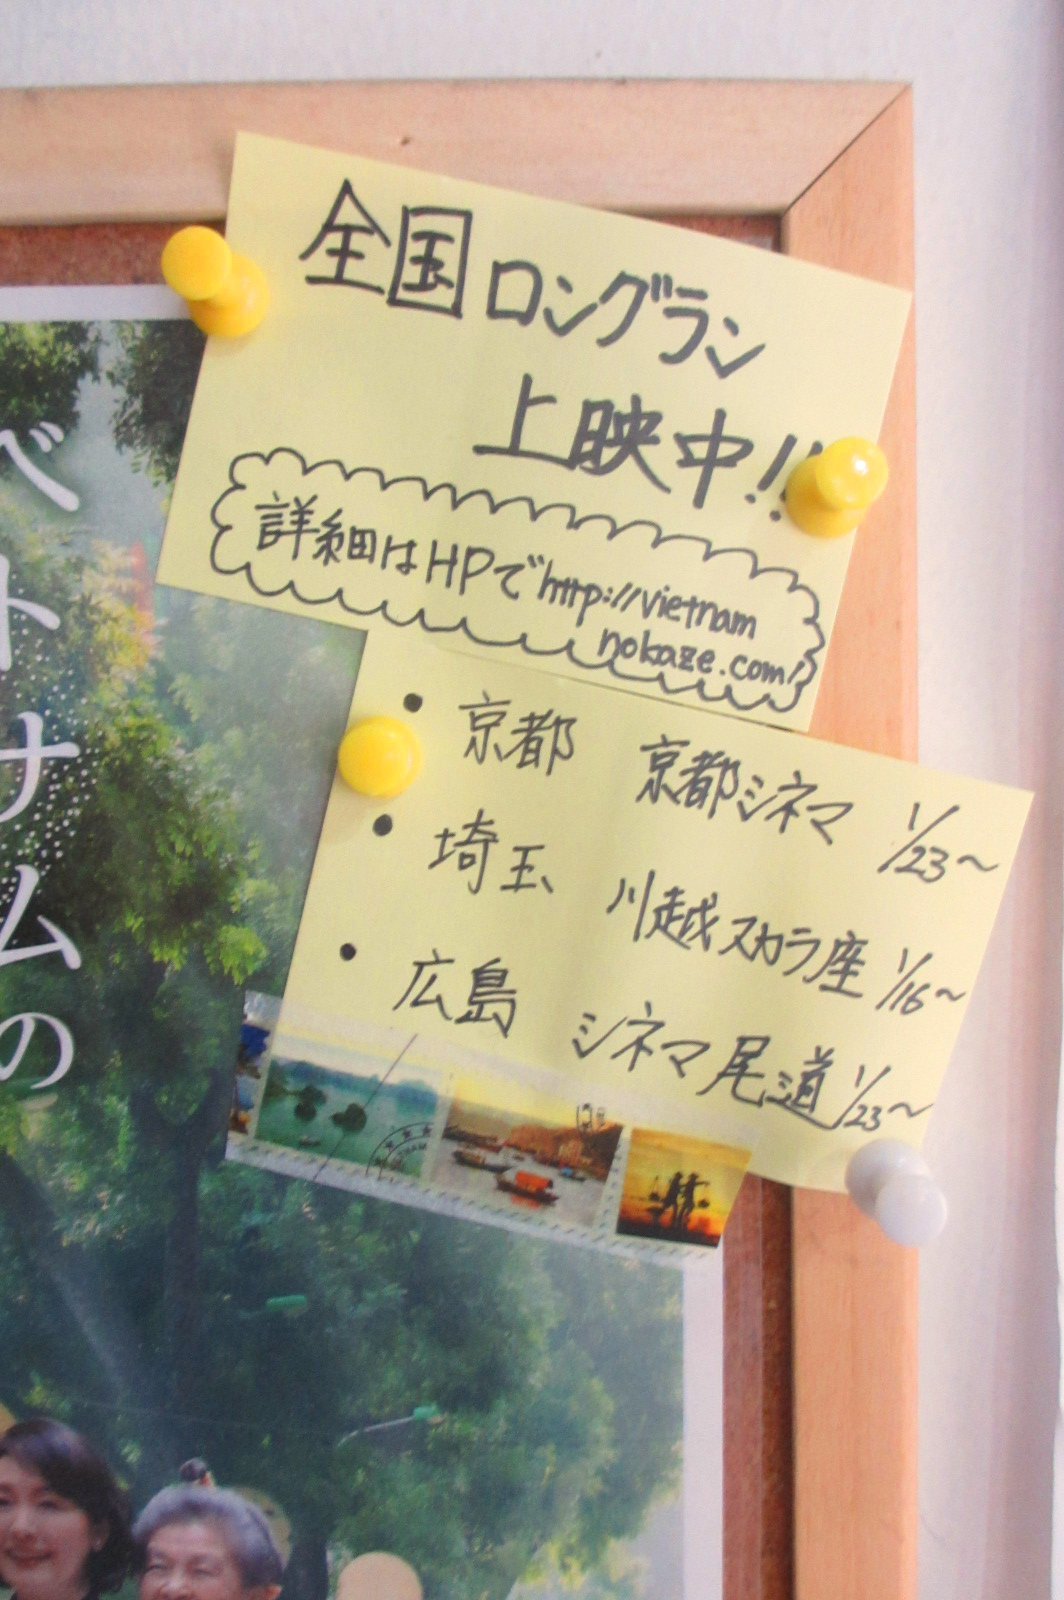 全国ロングラン
上映中!!
詳細はHPでhttp://vietnam
nokaze.com/
・京都 京都シネマ 1/23~
・埼玉 川越スカラ座 1/16~
・広島 シネマ尾道 1/23~
ベトナムの
VIETNAM